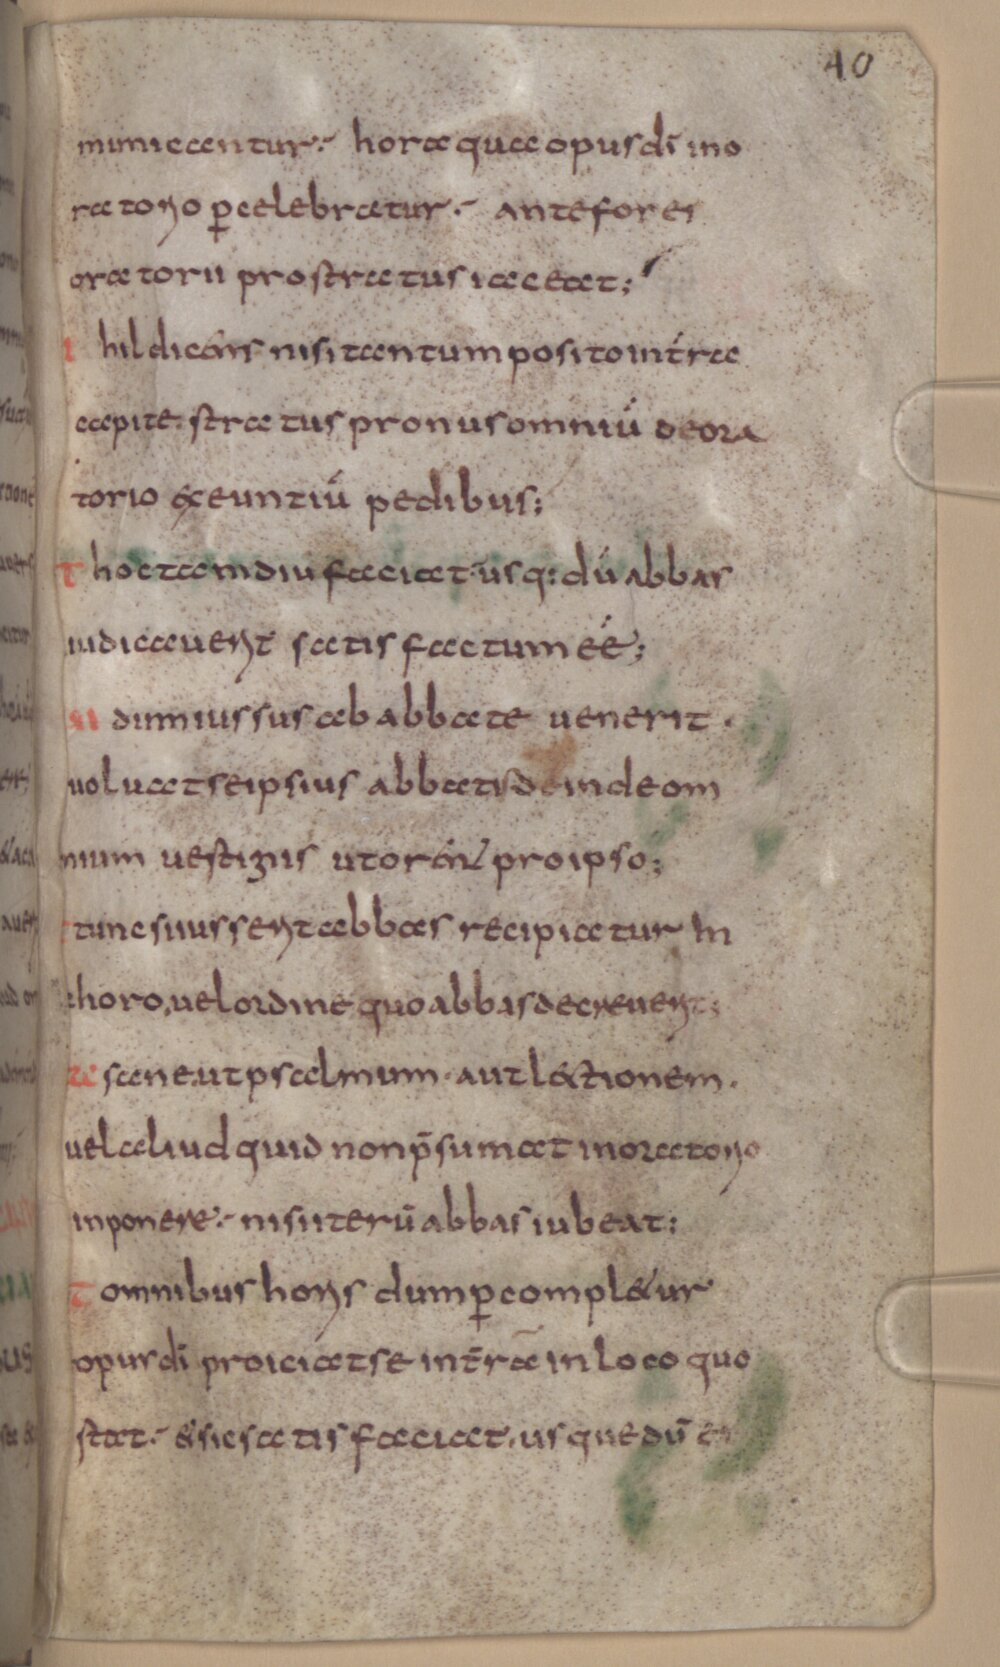 40
municantur· hora qua opus di ino
ratorio ꝑcelebratur· ante fores
oratorii prostratus iaceat;
hil dicens nisi tantum posito intra
capite· stratus pronus omniū de ora
torio exeuntiū pedibus;
t hoc tamdiu faciat· usq: dū abbas
iudicauerit satis factum eé;
ui dum iussus ab abbate uenerit·
uoluat se ipsius abbatis deinde om
nium uestigiis ut orent pro ipso;
t tunc si iusserit abbas recipiatur in
choro, uel ordine quo abbas decreuerit;
ta sane· ut psalmum· aut lectionem·
uel aliud quid non p̄sumat in oratorio
inponere· nisi iterū abbas iubeat;
t omnibus horis dum ꝑcompletur
opus di proiciat se in t̄ra in loco quo
stat· & sic satis faciat· usque dū ei